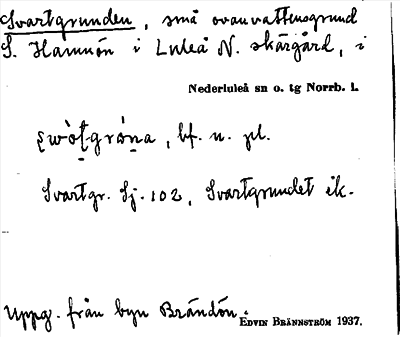 Svartgrunden, små ovanvattensgrund
S. Hamnön i Luleå N. skärgård, i
Nederluleå sn o. tg Norrb. l.
bf. n. pl.
Svartgr. Sj. 102, Svartgrundet ik.
Uppg. från byn Brändön.
EDVIN BRÄNNSTRÖM 1937.